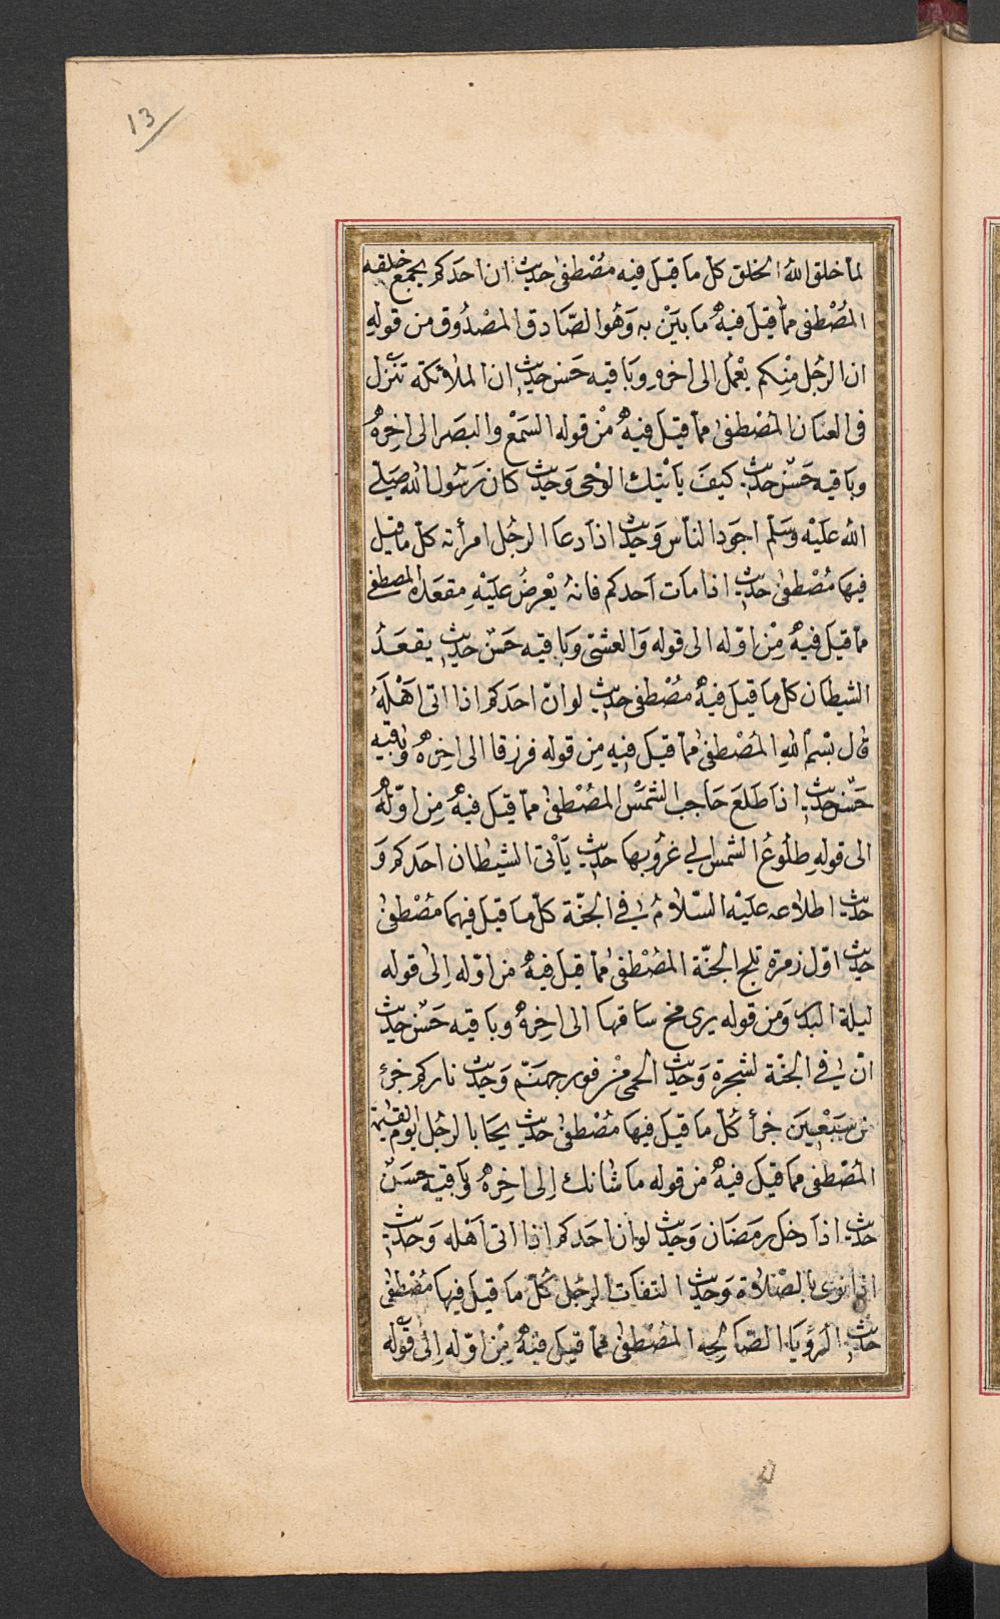 13
لما خلق الله الخلق كل ما قيل فيه مصطفى حديث ان احدكم يجمع خلقه
المصطفى مما قيل فيه ما بين به وهو الصادق المصدوق من قوله
ان الرجل منكم يعمل الى اخره وباقيه حسن حديث ان الملائكة تنزل
فى العنان المصطفى مما قيل فيه من قوله السمع والبصر الى اخره
وباقيه حسن حديث كيف يأتيك الوحى وحديث كان رسول الله صلى
الله عليه وسلم اجود الناس وحديث اذا دعا الرجل امرأته كل ما قيل
فيها مصطفى حديث اذا مات احدكم فانه يعرض عليه مقعده المصطفى
مما قيل فيه من اوله الى قوله والعشى وباقيه حسن حديث يقعد
الشيطان كل ما قيل فيه مصطفى حديث لو ان احدكم اذا اتى اهله
قال بسم الله المصطفى مما قيل فيه من قوله فرزقا الى اخره وباقيه
حسن حديث اذا طلع حاجب الشمس المصطفى مما قيل فيه من اوله
الى قوله طلوع الشمس لي غروبها حديث يأتى الشيطان احدكم و
حديث اطلاعه عليه السلام في الجنة كل ما قيل فيهما مصطفى
حديث اول زمرة تلج الجنة المصطفى مما قيل فيه من اوله الى قوله
ليلة البدر ومن قوله يرى مخ ساقها الى اخره وباقيه حسن حديث
ان في الجنة لشجرة وحديث الحمى من فور جهنم وحديث ناركم جزء
من سبعين جزأ كل ما قيل فيها مصطفى حديث يجا بالرجل يوم القيمة
المصطفى مما قيل فيه من قوله ما شانك الى اخره وباقيه حسن
حديث اذا دخل رمضان وحديث لو ان احدكم اذا اتى اهله وحديث
اذا نودى بالصلاة وحديث التفات الرجل كل ما قيل فيها مصطفى
حديث الرؤيا الصالحه المصطفى مما قيل فيه من اوله الى قوله